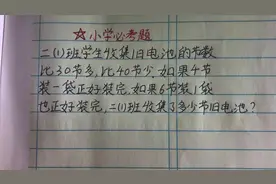 ☆小学必考题
二(1)班学生收集旧电池的节数
比30节多,比40节少,如果4节
装一袋正好装完,如果6节装1袋
也正好装完,二(1)班收集了多少节旧电池?